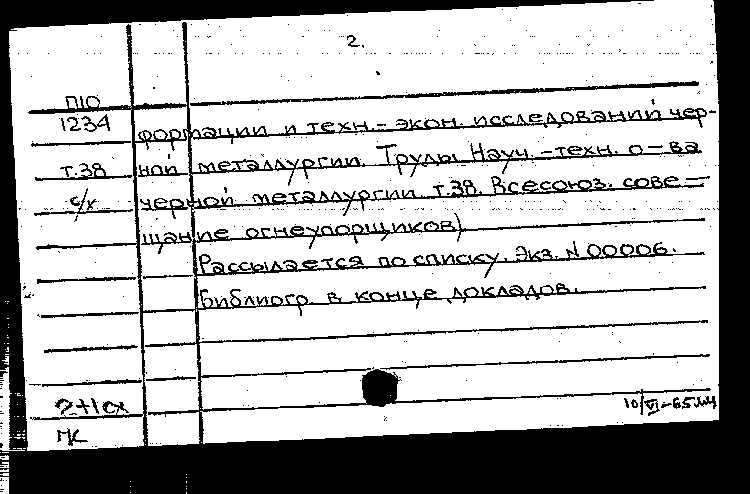 2.
П10
1234
т.38
с/х
формации и техн.- экон. исследований чер-
ной металлургии. Труды Науч.-техн. о-ва
черной металлургии т.38. Всесоюз. сове-
щание огнеупорщиков)
Рассылается по списку. Экз. N 00006.
Библиогр. в конце докладов.
2+1сх
10/VI-65